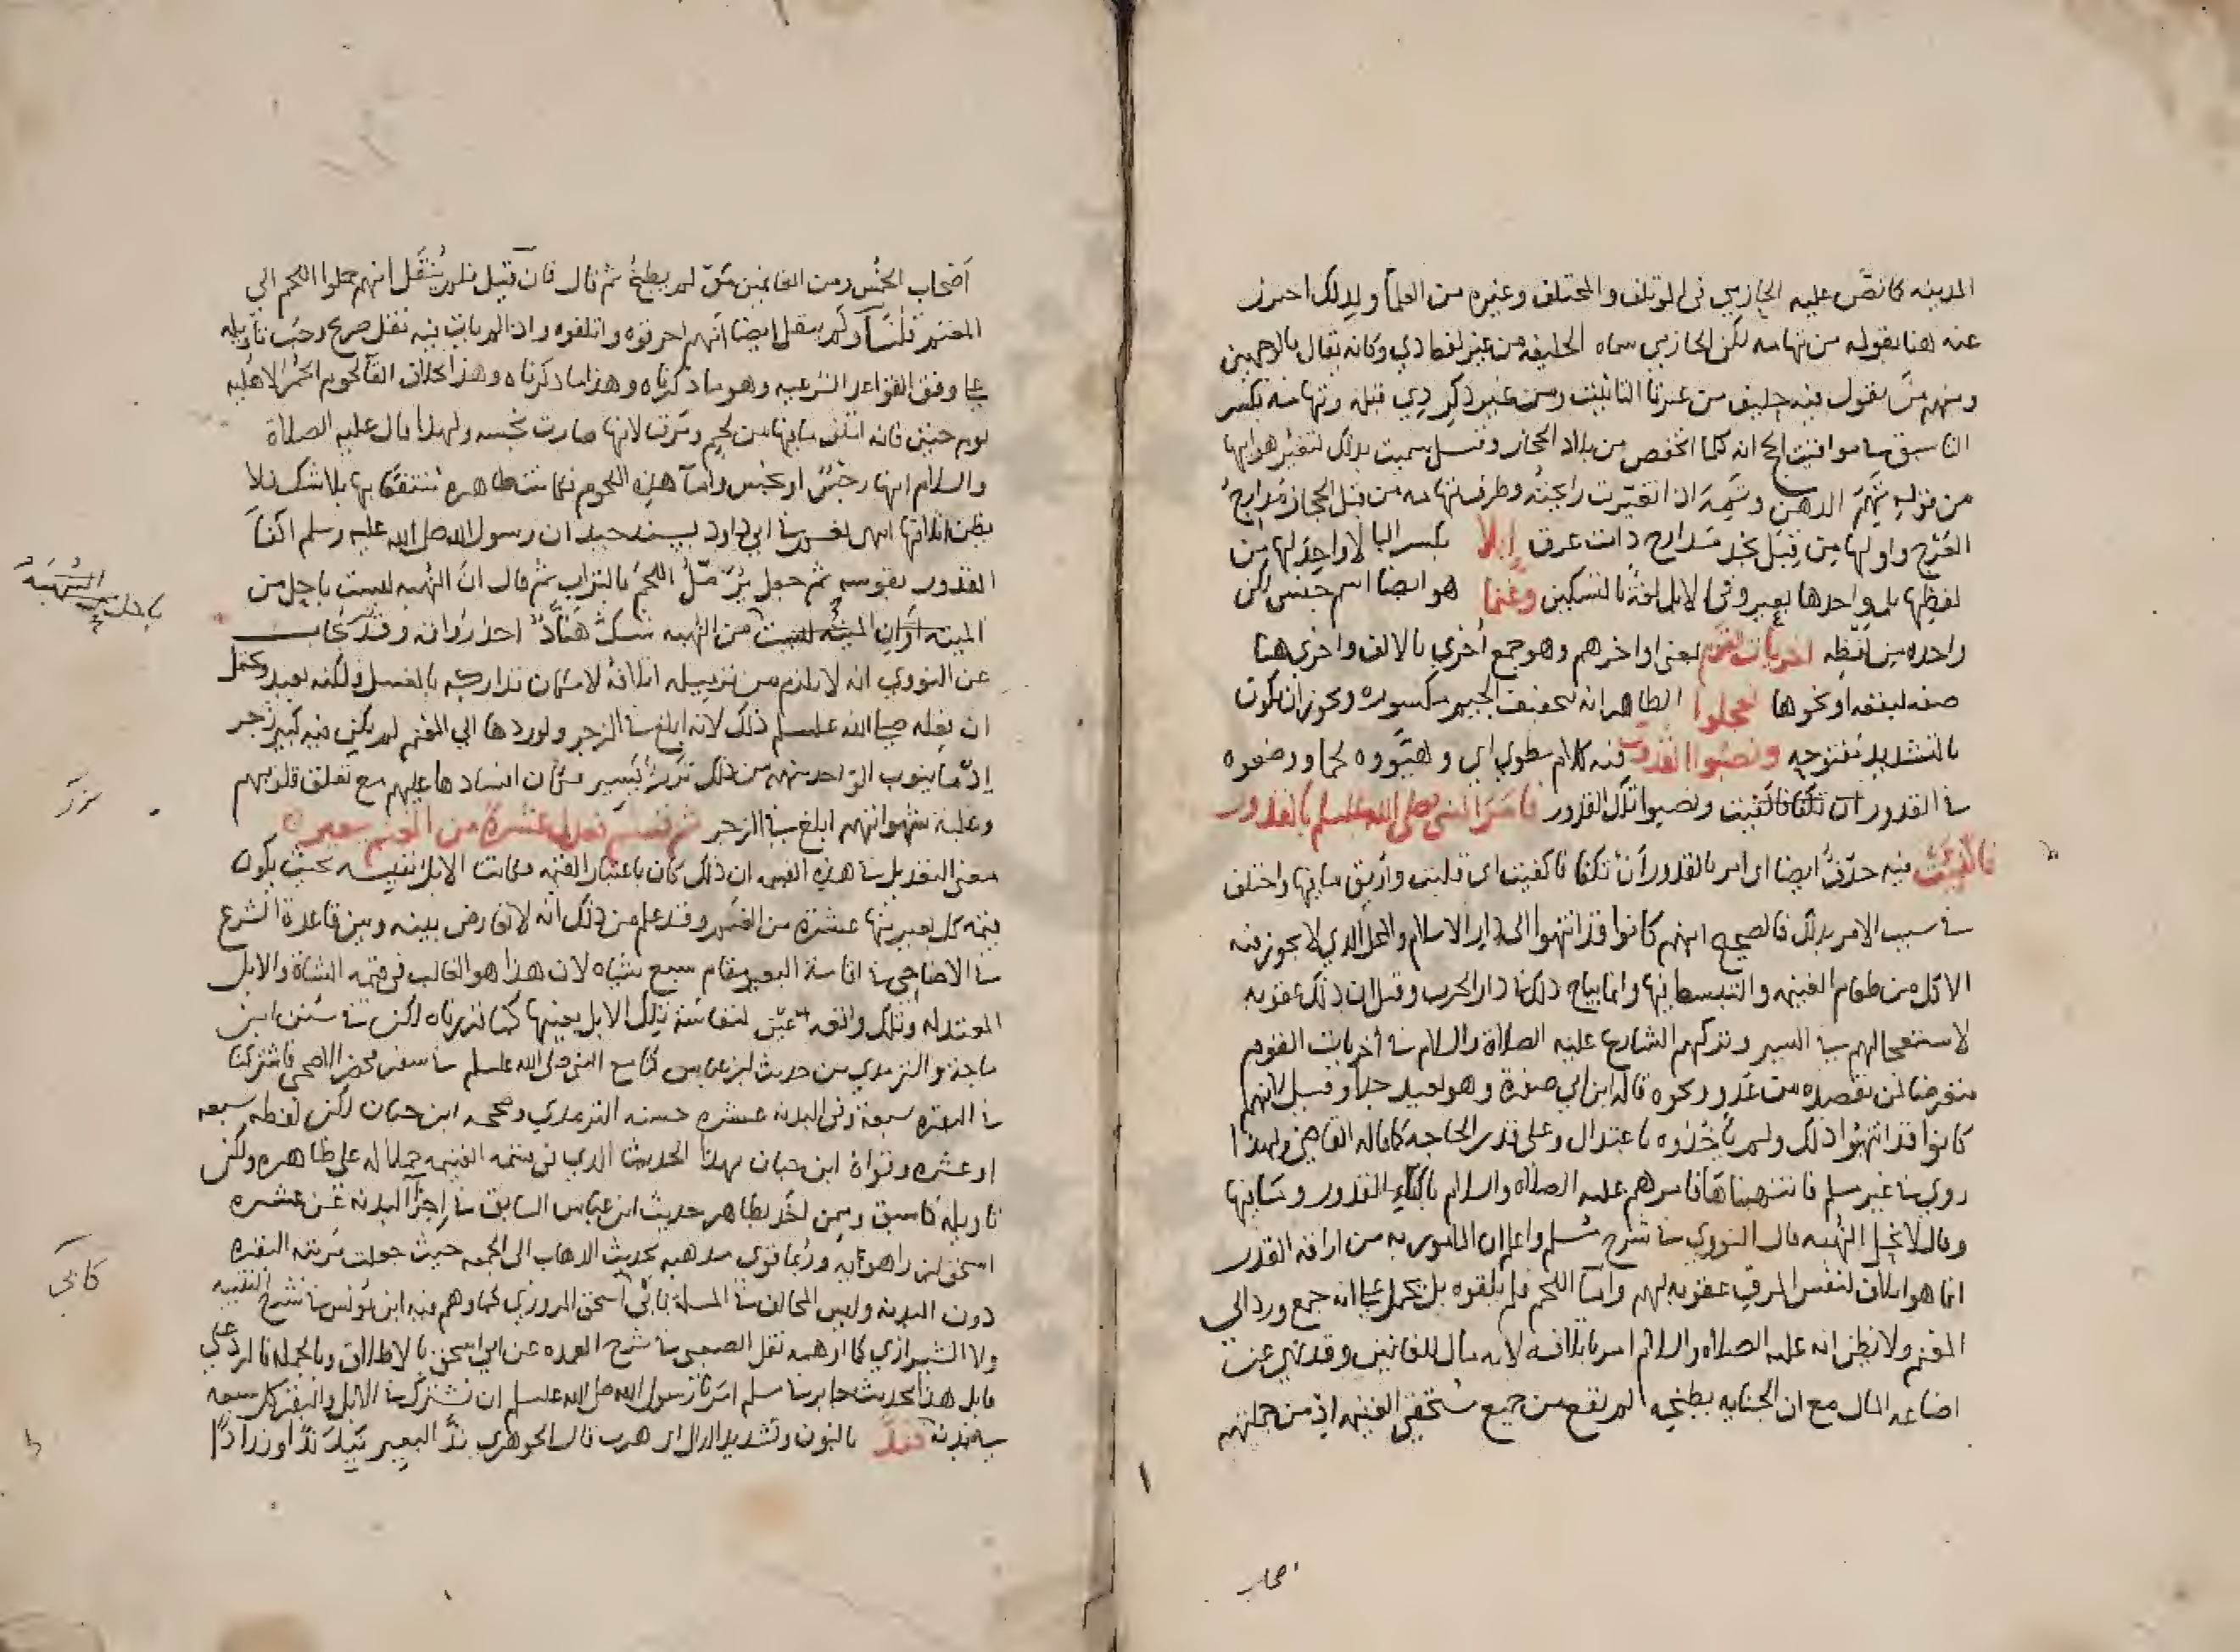 المدينه كما نص عليه الحازمي في الموتلف والمختلف وغيره من العلما ولذلك احترز
عنه هنا بقوله من تهامه لكن الحازمي سماه الحليفه من غير لفظ ذي وكانه يقال بالوجهين
ومنهم من يقول فيه حليف من غير تا التانيث ومن غير ذكر ذي قبله وتهامه بكسر
التا سبق في مواقيت الحج انه كلما انخفض من بلاد الحجاز وقيل سميت بذلك لتغير هوايها
من قولهم تَهِمَ الدهن وتَمِهَ اذا تغيرت رايحته وطرف تهامه من قبل الحجاز مدارج
العرج واولها من قبل نجد مدارج ذات عرق إبلا بكسر البا لا واحد لها من
لفظها بل واحدها بعير وفي الابل لغة بالتسكين وغنما هو ايضا اسم جنس لكن
واحده من لفظه اخريات القوم بمعنى اواخرهم وهو جمع اخرى بالالف واخرى هنا
صفه لبقعه او نحوها فعجلوا الظاهر انه بتخفيف الجيم مكسوره ويجوز ان يكون
بالتشديد مفتوحه ونصبوا القدور فيه كلام مطوي اي وهيوه لحما ووضعوه
في القدور ونصبوا تلك القدور فامر النبي صلى الله عليه وسلم بالقدور
فاكفيت فيه حذف ايضا اي امر بالقدور ان تكفا فاكفيت اي قلبت واريق ما فيها واختلف
في سبب الامر بذلك فالصحيح انهم كانوا قد انتهوا الى دار الاسلام والمحل الذي لا يجوز فيه
الاكل من طعام الغنيمه والتبسط فيها وانما يباح ذلك في دار الحرب وقيل ان ذلك عقوبه
لاستعجالهم في السير وتركهم الشارع عليه الصلاة والسلام في اخريات القوم
متعرضا لمن يقصده من عدو ونحوه قاله ابن ابي صفرة وهو بعيد جدا وقيل لانهم
كانوا قد انتهبوا ذلك ولم ياخذوه باعتدال وعلى قدر الحاجه كما قاله القاضي ولهذا
روي في غير مسلم فانتهبناها فامرهم عليه الصلاه والسلام باكفاء القدور وما فيها
وقال لا تحل النهبه قال النووي في شرح مسلم واعلم ان المامور به من اراقه القدر
انما هو اتلاف لنفس المرق عقوبه لهم واما اللحم فلم يلقوه بل يحمل على انه جمع ورد الى
المغنم ولا يظن انه عليه الصلاه والسلام امر باتلافه لانه مال للغانمين وقد نهى عن
اضاعه المال مع ان الجنايه بطبخه لم تقع من جميع مستحقي الغنيمه اذ من جملتهم
اصحاب
اصحاب الخمس ومن الغانمين من لم يطبخ ثم قال فان قيل فلم ينقل انهم حملوا اللحم الى
المغنم قلنا ولم ينقل ايضا انهم احرقوه واتلفوه واذا لم يات فيه نقل صريح وجب تاويله
على وفق القواعد الشرعيه وهو ما ذكرناه وهذا ما ذكرناه وهذا بخلاف القا لحوم الحمر الاهليه
يوم حنين فانه اتلف ما فيها من لحم ومرق لانها صارت نجسه ولهذا قال عليه الصلاة
والسلام انها رجس او نجس واما هذه اللحوم فكانت طاهره منتفعا بها بلا شك فلا
يظن اتلافها انتهى لكن في ابي داود بسند جيد ان رسول الله صلى الله عليه وسلم اكفا
القدور بقوسه ثم جعل يرمل اللحم بالتراب ثم قال ان النهبه ليست باحل من
الميته او ان الميته ليست من النهبه شك هناد احد رواته وقد يجاب
عن النووي انه لا يلزم من تتريبه اتلافه لامكان تداركه بالغسل ولكنه بعيد ويحتمل
ان يفعله صلى الله عليه وسلم ذلك لانه ابلغ في الزجر ولو ردها الى المغنم لم يكن فيه كبير زجر
اذ ما ينوب الواحد منهم من ذلك نزر يسير فكان افسادها عليهم مع تعلق قلوبهم
وغلبة شهواتهم ابلغ في الزجر ثم قسم فعدل عشرة من الغنم ببعير
معنى التعديل في هذه القسمه ان ذلك كان باعتبار القيمه فكانت الابل نفيسه بحيث يكون
قيمه كل بعير منها عشرة من الغنم وقد علم من ذلك انه لا تعارض بينه وبين قاعدة الشرع
في الاضاحي في اقامة البعير مقام سبع شياه لان هذا هو الغالب في قيمه الشاة والابل
المعتدلة وتلك واقعه عين لنفاسة تلك الابل بعينها كما قررناه لكن في سنن ابن
ماجه والترمذي من حديث ابن عباس كنا مع النبي صلى الله عليه وسلم في سفر فحضر الاضحى فاشتركنا
في البقره سبعة وفي البدنه عشره حسنه الترمذي وصححه ابن حبان لكن لفظه سبعه
او عشره وقواه ابن حبان بهذا الحديث الذي في قسمه الغنيمه حملا له على ظاهره ولكن
تاويله كما سبق وممن اخذ بظاهر حديث ابن عباس السابق في اجزآ البدنه عن عشره
اسحق بن راهويه وربما قوى مذهبه بحديث الذهاب الى الجمعه حيث جعلت مرتبه البقره
دون البدنه وليس المخالف في المسلة بابي اسحق المروزي كما وهم فيه ابن يونس في شرح التنبيه
ولا الشيرازي كما اوهمه نقل الصعبي في شرح العمده عن ابي اسحق بالاطلاق وبالجمله فالرد على
قايل هذا بحديث جابر في مسلم امرنا رسول الله صلى الله عليه وسلم ان نشترك في الابل والبقر كل سبعه
في بدنه فند بالنون وتشديد الدال اي هرب قال الجوهري ند البعير يند ندا
النهبة
باحل من
نزر
كابي